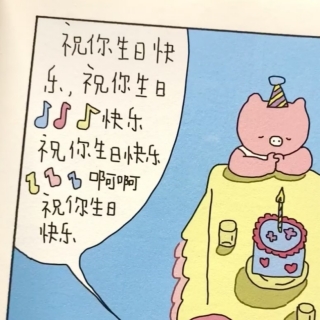 祝你生日快
乐,祝你生日
快乐
祝你生日快乐
啊啊
祝你生日
快乐